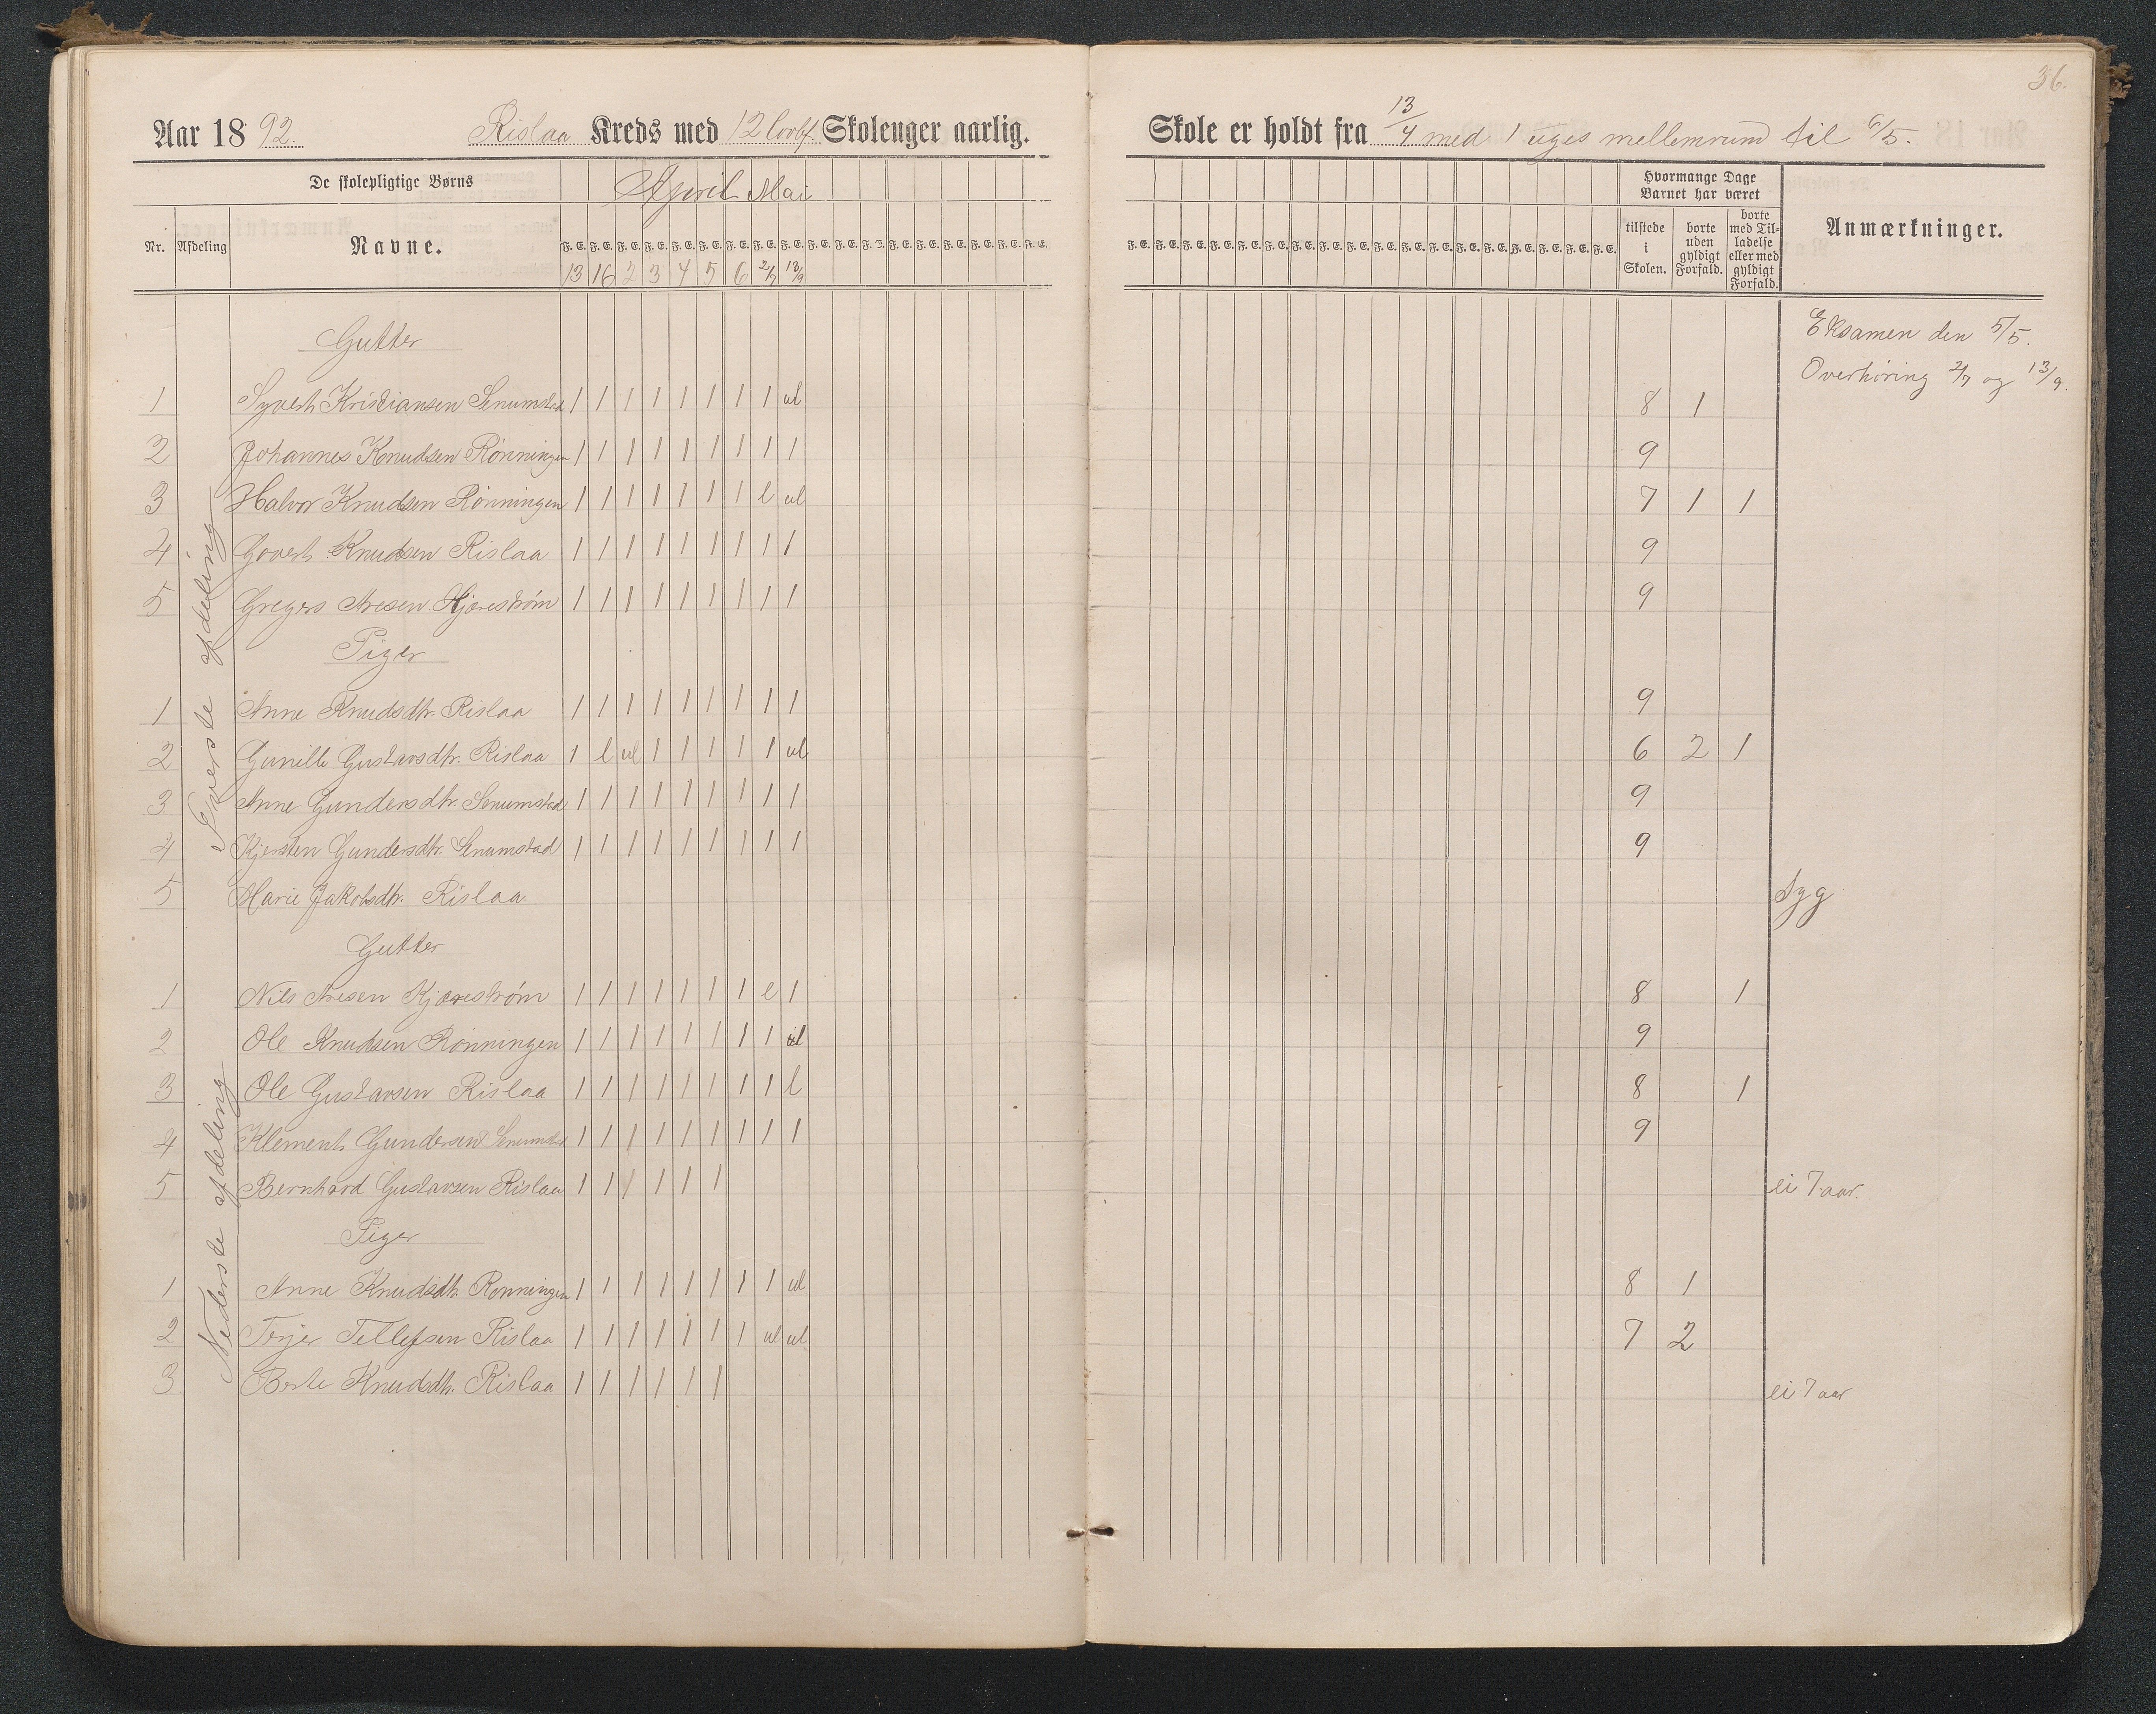 36.
Aar 1892. Rislaa Kreds med 12 lovbf. Skoleuger aarlig. Skole er holdt fra 13/4 med 1 uges mellemrum til 6/5.
De skolepligtige Børns April Mai Hvormange Dage Barnet har været
Nr. Afdeling Navne. F. E. F. E. F. E. F. E. F. E. F. E. F. E. F. E. F. E. F. E. F. E. F. E. F. E. F. E. F. E. F. E. F. E. F. E. tilstede i Skolen. borte uden gyldigt Forfald. borte med Tilladelse eller med gyldigt Forfald. Anmærkninger.
13 16 2 3 4 5 6 2/7 13/9
Øverste afdeling
Gutter Eksamen den 5/5.
Overhöring 2/7 og 13/9.
1 Syvert Kristiansen Senumstad 1 1 1 1 1 1 1 1 ul 8 1
2 Johannes Knudsen Rönningen 1 1 1 1 1 1 1 1 1 9
3 Halvor Knudsen Rönningen 1 1 1 1 1 1 1 l ul 7 1 1
4 Govert Knudsen Rislaa 1 1 1 1 1 1 1 1 1 9
5 Gregers Aresen Kjæreström 1 1 1 1 1 1 1 1 1 9
Piger
1 Anne Knudsdtr. Rislaa 1 1 1 1 1 1 1 1 1 9
2 Gunille Gustavsdtr. Rislaa 1 l ul 1 1 1 1 1 ul 6 2 1
3 Anne Gundersdtr. Senumstad 1 1 1 1 1 1 1 1 1 9
4 Kjersten Gundersdtr. Senumstad 1 1 1 1 1 1 1 1 1 9
5 Marie Jakobsdtr. Rislaa Syg
Nederste afdeling
Gutter
1 Nils Aresen Kjæreström 1 1 1 1 1 1 1 l 1 8 1
2 Ole Knudsen Rönningen 1 1 1 1 1 1 1 1 ul 9
3 Ole Gustavsen Rislaa 1 1 1 1 1 1 1 1 l 8 1
4 Klement Gundersen Senumstad 1 1 1 1 1 1 1 1 1 9
5 Bernhard Gustavsen Rislaa 1 1 1 1 1 1 ei 7 aar.
Piger
1 Anne Knudsdtr. Rönningen 1 1 1 1 1 1 1 1 ul 8 1
2 Terjer Tellefsen Rislaa 1 1 1 1 1 1 1 ul ul 7 2
3 Berte Knudsdtr. Rislaa 1 1 1 1 1 1 ei 7 aar